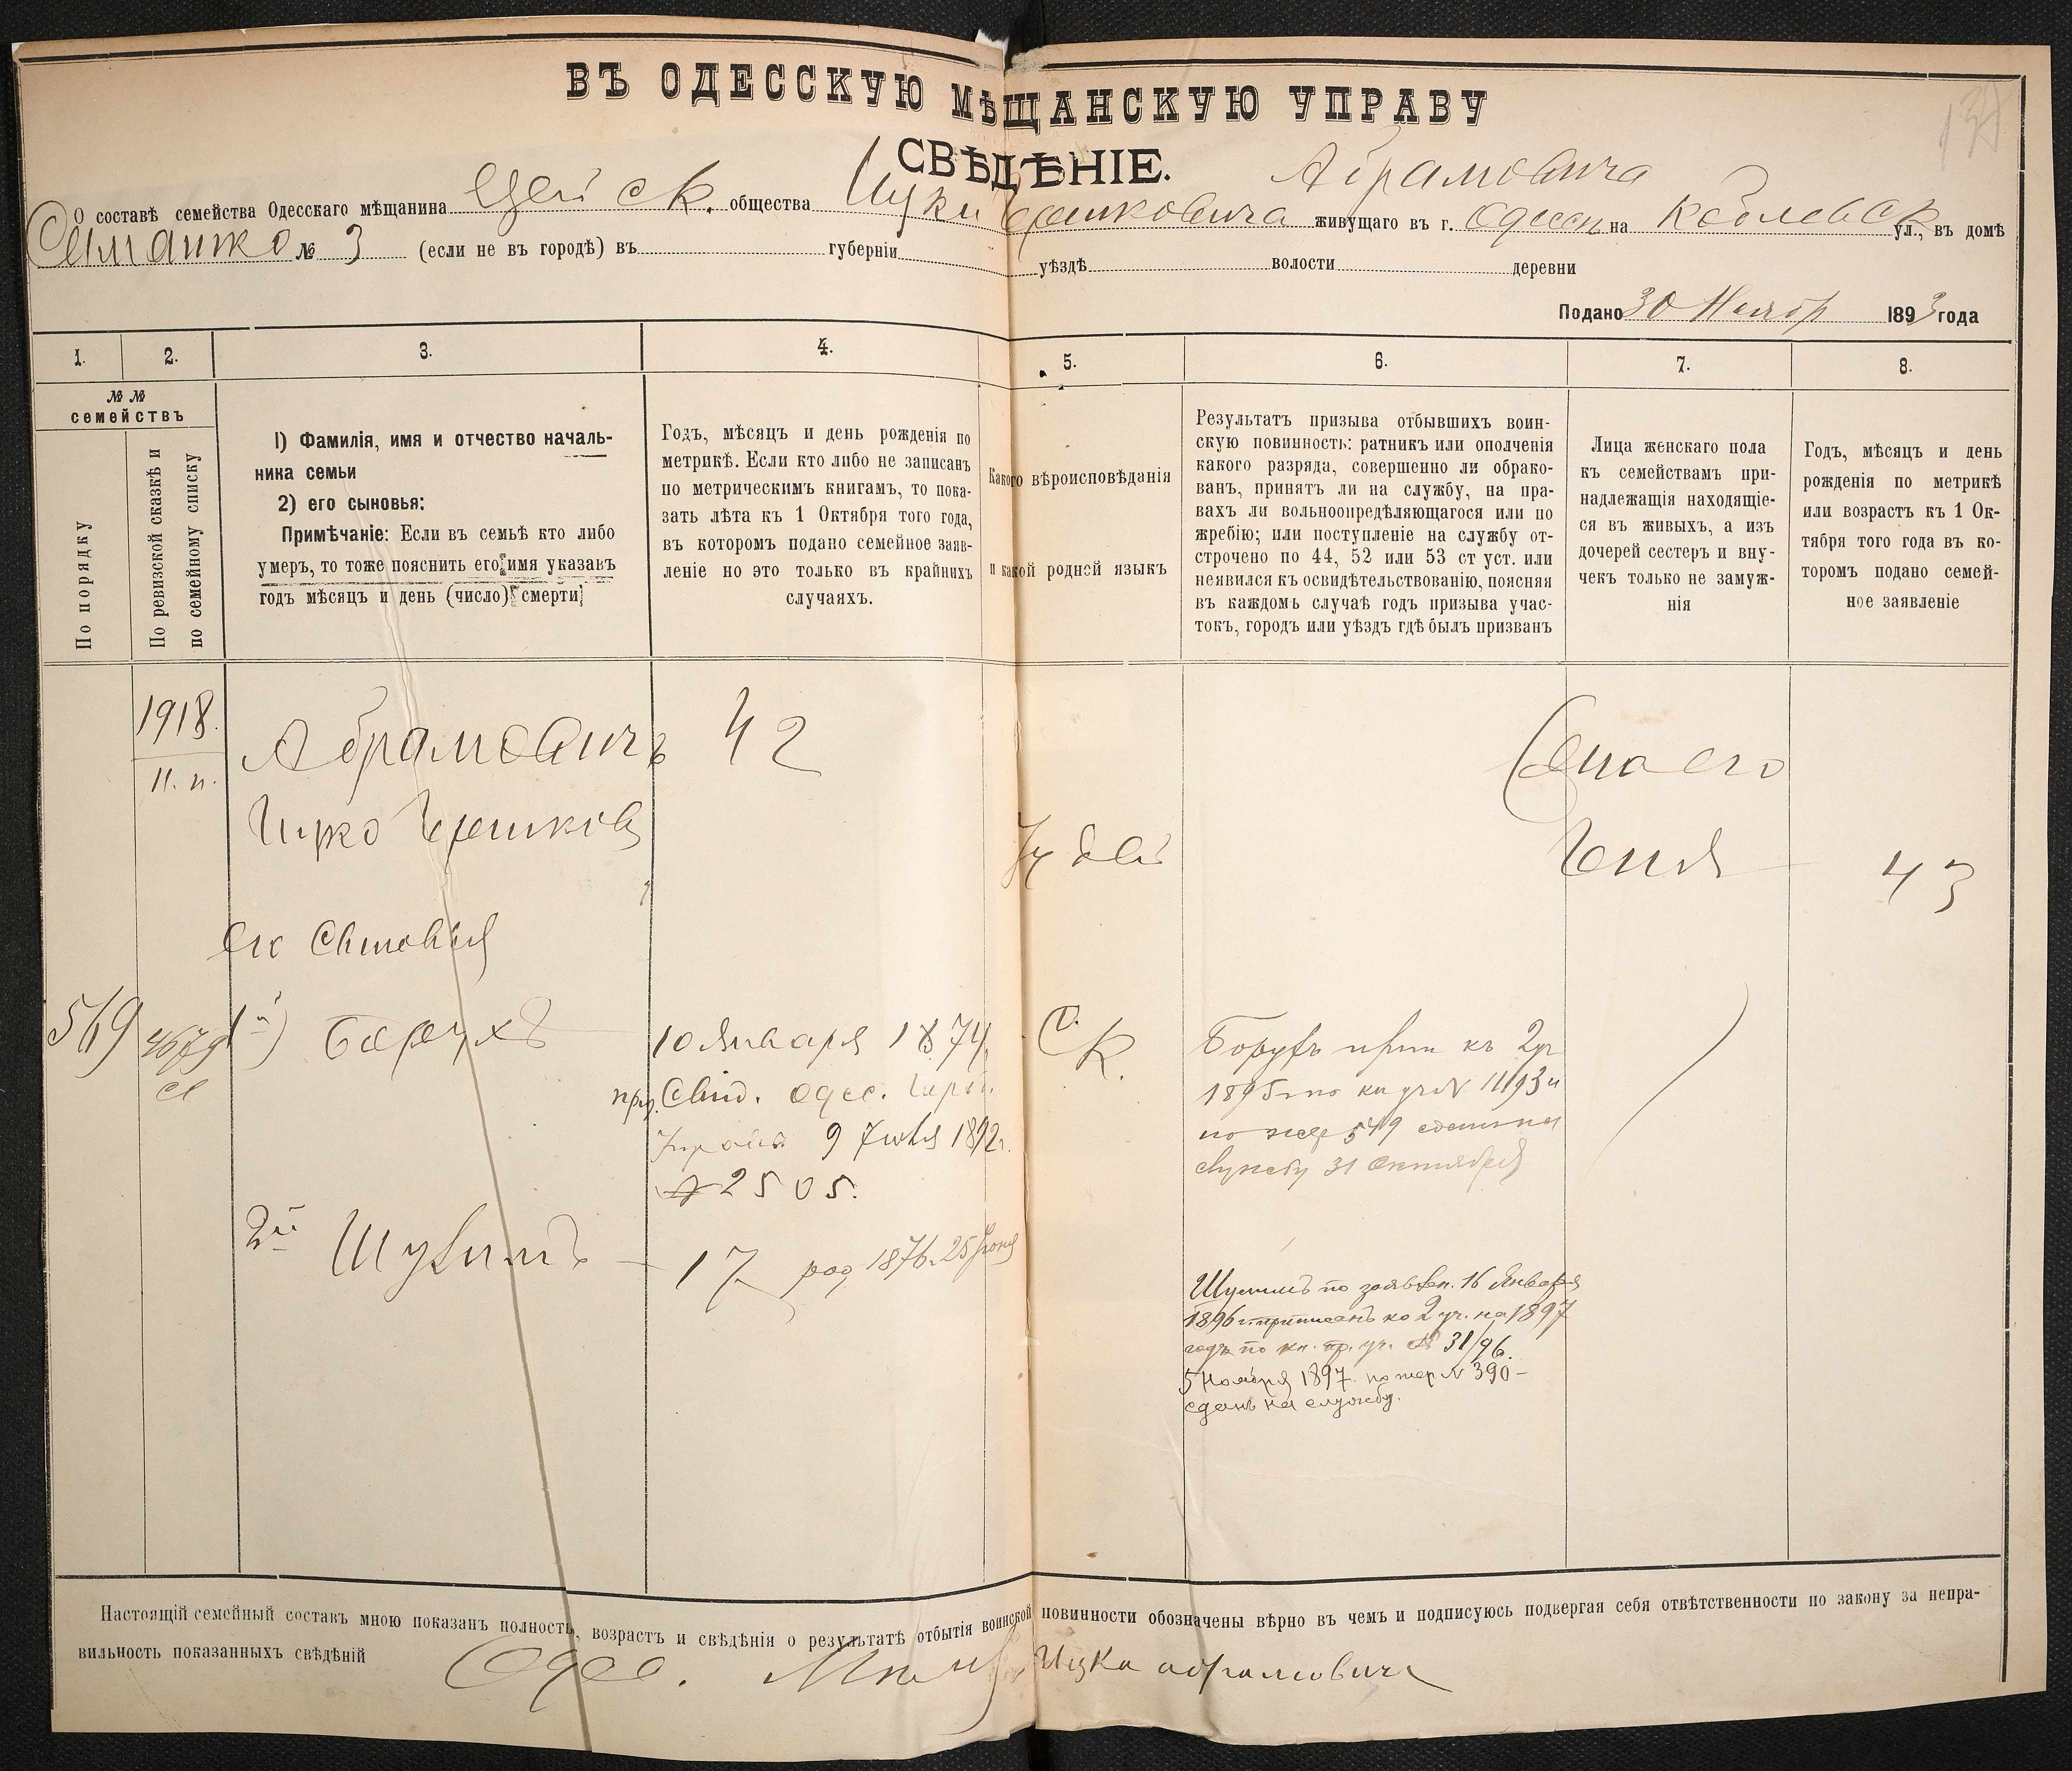 ВЪ ОДЕССКУЮ МѢЩАНСКУЮ УПРАВУ
СВѢДѢНІЕ.
Абрамовича
О составѣ семейства Одесскаго мѣщанина Евр. ск. общества Ицки Гершковича живущаго въ г. Одессѣ на Коблевск ул., въ домѣ
Симанко № 3 (если не въ городѣ) въ губерніи уѣздѣ волости деревни
Подано 30 Ноябр 1893 года
1. 2. 3. 4. 5. 6. 7. 8.
№ №
семействъ
По порядку
По ревизской сказкѣ и
по семейному списку
1) Фамилія, имя и отчество началь-
ника семьи
2) его сыновья:
Примѣчаніе: Если въ семьѣ кто либо
умеръ, то тоже пояснить его имя указавъ
годъ мѣсяцъ и день (число) смерти
Годъ, мѣсяцъ и день рожденія по
метрикѣ. Если кто либо не записанъ
по метрическимъ книгамъ, то пока-
зать лѣта къ 1 Октября того года,
въ которомъ подано семейное заяв-
леніе но это только въ крайнихъ
случаяхъ.
Какого вѣроисповѣданія
и какой родной языкъ
Результатъ призыва отбывшихъ воин-
скую повинность: ратникъ или ополченія
какого разряда, совершенно ли обрако-
ванъ, принятъ ли на службу, на пра-
вахъ ли вольноопредѣляющагося или по
жребію; или поступленіе на службу от-
строчено по 44, 52 или 53 ст уст. или
неявился къ освидѣтельствованію, поясняя
въ каждомъ случаѣ годъ призыва учас-
токъ, городъ или уѣздъ гдѣ былъ призванъ
Лица женскаго пола
къ семействамъ при-
надлежащія находящіе-
ся въ живыхъ, а изъ
дочерей сестеръ и вну-
чекъ только не замуж-
нія
Годъ, мѣсяцъ и день
рожденія по метрикѣ
или возрастъ къ 1 Ок-
тября того года въ ко-
торомъ подано семей-
ное заявленіе
1918.
11. п.
Абрамовичъ 42
Ицко Гершков
Іудей
Жена его
Геня 43
его сыновья
569 4679 1й) Борухъ 10 Января 1874
Свид. Одес. Гор.
Управы 9 Іюля 1892г.
№ 2505.
ск.
Борухъ прип къ 2 уч
1895 по кн уч № 11193 и
по жер 549 сданъ на
службу 31 Октября
2й Шулимъ 17 род 1876. 25 Іюня
Шулимъ по заявлен. 16 Января
1896 г. приписанъ ко 2 уч. на 1897
годъ по кн. пр. уч. № 31/96.
5 Ноября 1897. по жер № 390 –
сданъ на службу.
Настоящій семейный составъ мною показанъ полность, возрастъ и свѣдѣнія о результатѣ отбытія воинской повинности обозначены вѣрно въ чемъ и подписуюсь подвергая себя отвѣтственности по закону за непра-
вильность показанныхъ свѣдѣній
Одес. Мѣщ Ицка абрамович